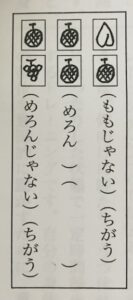 （ももじゃない）（ちがう）
（めろん　）（　　　）
（めろんじゃない）（ちがう）